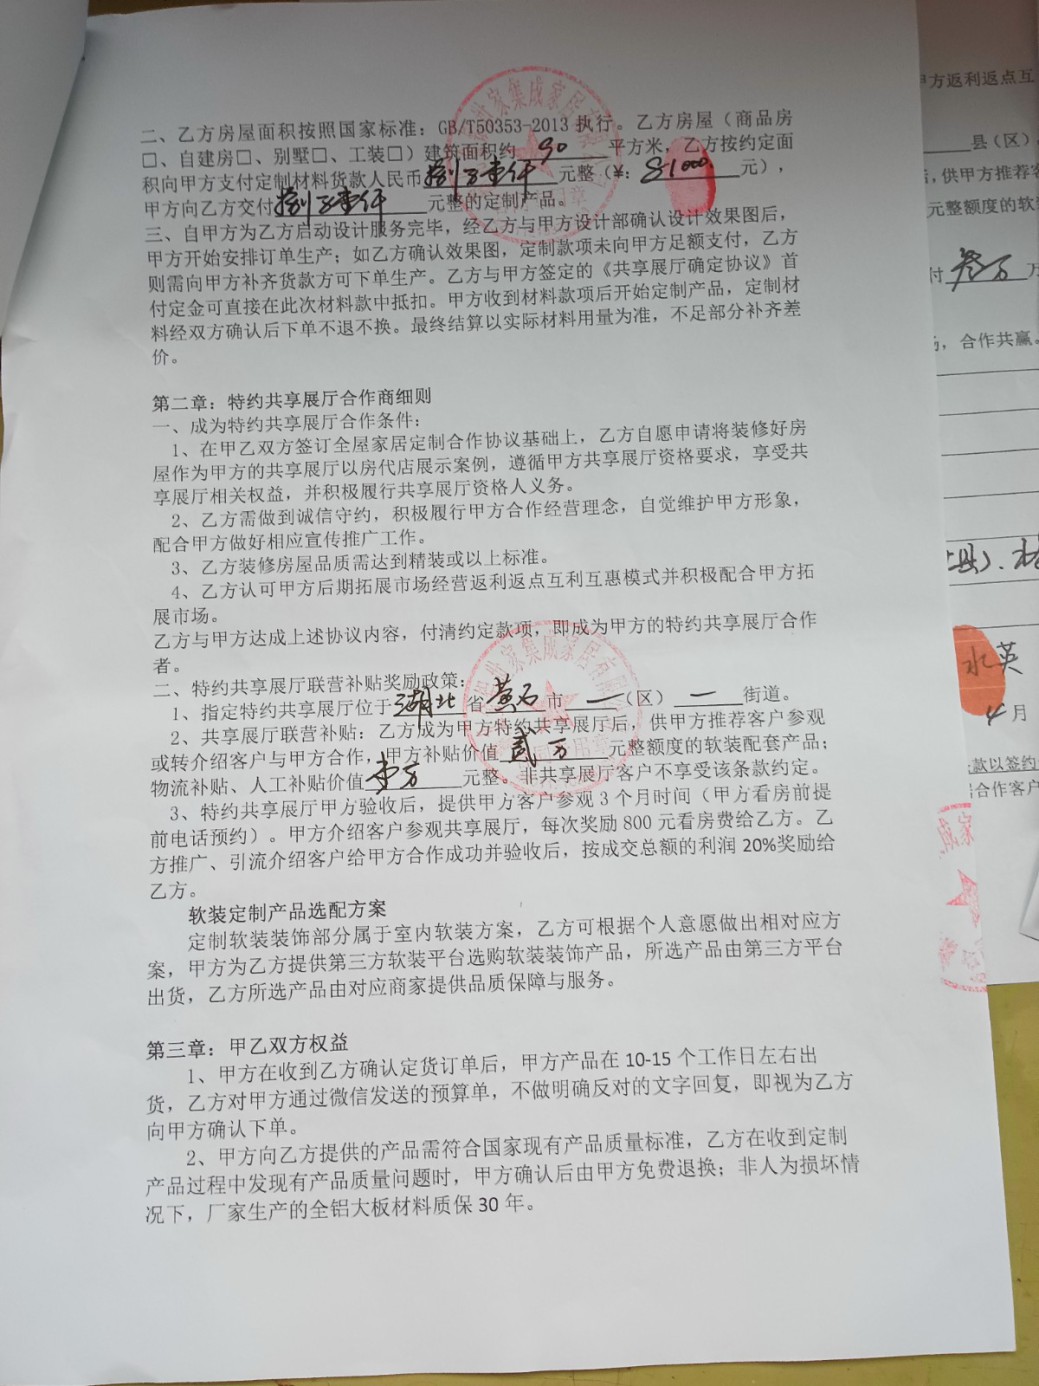 二、乙方房屋面积按照国家标准：GB/T50353-2013 执行。乙方房屋（商品房
□、自建房□、别墅□、工装□）建筑面积约 90 平方米，乙方按约定面
积向甲方支付定制材料货款人民币捌万壹仟元整（¥：81000元），
甲方向乙方交付捌万壹仟元整的定制产品。
三、自甲方为乙方启动设计服务完毕，经乙方与甲方设计部确认设计效果图后，
甲方开始安排订单生产；如乙方确认效果图，定制款项未向甲方足额支付，乙方
则需向甲方补齐货款方可下单生产。乙方与甲方签定的《共享展厅确定协议》首
付定金可直接在此次材料款中抵扣。甲方收到材料款项后开始定制产品，定制材
料经双方确认后下单不退不换。最终结算以实际材料用量为准，不足部分补齐差
价。
第二章：特约共享展厅合作商细则
一、成为特约共享展厅合作条件：
1、在甲乙双方签订全屋家居定制合作协议基础上，乙方自愿申请将装修好房
屋作为甲方的共享展厅以房代店展示案例，遵循甲方共享展厅资格要求，享受共
享展厅相关权益，并积极履行共享展厅资格人义务。
2、乙方需做到诚信守约，积极履行甲方合作经营理念，自觉维护甲方形象，
配合甲方做好相应宣传推广工作。
3、乙方装修房屋品质需达到精装或以上标准。
4、乙方认可甲方后期拓展市场经营返利返点互利互惠模式并积极配合甲方拓
展市场。
乙方与甲方达成上述协议内容，付清约定款项，即成为甲方的特约共享展厅合作
者。
二、特约共享展厅联营补贴奖励政策：
1、指定特约共享展厅位于湖北省黄石市一（区）一街道。
2、共享展厅联营补贴：乙方成为甲方特约共享展厅后，供甲方推荐客户参观
或转介绍客户与甲方合作，甲方补贴价值贰万元整额度的软装配套产品；
物流补贴、人工补贴价值壹万元整。非共享展厅客户不享受该条款约定。
3、特约共享展厅甲方验收后，提供甲方客户参观 3 个月时间（甲方看房前提
前电话预约）。甲方介绍客户参观共享展厅，每次奖励 800 元看房费给乙方。乙
方推广、引流介绍客户给甲方合作成功并验收后，按成交总额的利润 20%奖励给
乙方。
软装定制产品选配方案
定制软装装饰部分属于室内软装方案，乙方可根据个人意愿做出相对应方
案，甲方为乙方提供第三方软装平台选购软装装饰产品，所选产品由第三方平台
出货，乙方所选产品由对应商家提供品质保障与服务。
第三章：甲乙双方权益
1、甲方在收到乙方确认定货订单后，甲方产品在 10-15 个工作日左右出
货，乙方对甲方通过微信发送的预算单，不做明确反对的文字回复，即视为乙方
向甲方确认下单。
2、甲方向乙方提供的产品需符合国家现有产品质量标准，乙方在收到定制
产品过程中发现有产品质量问题时，甲方确认后由甲方免费退换；非人为损坏情
况下，厂家生产的全铝大板材料质保 30 年。
甲方返利返点互
县（区）
供甲方推荐客
元整额度的软
付叁万万
合作共赢。
水英
4月
款以签约
合作客户